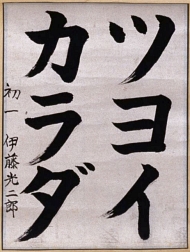 ツヨイ
カラダ
初一 伊藤光二郎